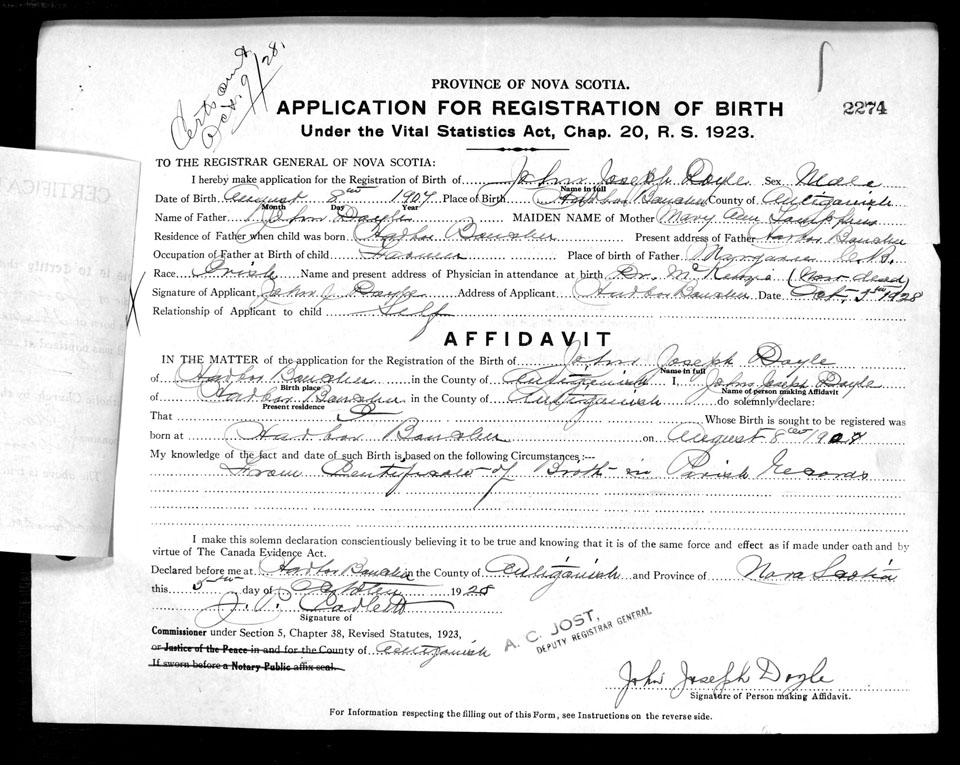 Certs sent
Oct. 9/28.
PROVINCE OF NOVA SCOTIA.
APPLICATION FOR REGISTRATION OF BIRTH
2274
Under the Vital Statistics Act, Chap. 20, R. S. 1923.
TO THE REGISTRAR GENERAL OF NOVA SCOTIA:
I hereby make application for the Registration of Birth of John Joseph Doyle Sex Male
Name in full
Date of Birth August 8th 1907 Place of Birth Harbor Boucher County of Antigonish
Month Day Year
Name of Father John Doyle MAIDEN NAME of Mother Mary Ann
Residence of Father when child was born Harbor Boucher Present address of Father Harbor Boucher
Occupation of Father at Birth of child Farmer Place of birth of Father C.B.
Race Irish Name and present address of Physician in attendance at birth Dr. McKenzie (Now dead)
Signature of Applicant John J Doyle Address of Applicant Harbor Boucher Date Oct. 5th 1928
Relationship of Applicant to child Self
AFFIDAVIT
IN THE MATTER of the application for the Registration of the Birth of John Joseph Doyle
Name in full
of Harbor Boucher in the County of Antigonish I, John Joseph Doyle
Birth place Name of person making Affidavit
of Harbor Boucher in the County of Antigonish do solemnly declare:
Present residence
That I Whose Birth is sought to be registered was
born at Harbor Boucher on August 8th 1907
My knowledge of the fact and date of such Birth is based on the following Circumstances:—
From Certificate of Birth in Parish Records
I make this solemn declaration conscientiously believing it to be true and knowing that it is of the same force and effect as if made under oath and by
virtue of The Canada Evidence Act.
Declared before me at Harbor Boucher in the County of Antigonish and Province of Nova Scotia
this 5th day of October 1928
Signature of
Commissioner under Section 5, Chapter 38, Revised Statutes, 1923,
or Justice of the Peace in and for the County of Antigonish
If sworn before a Notary Public affix seal.
A. C. JOST,
DEPUTY REGISTRAR GENERAL
John Joseph Doyle
Signature of Person making Affidavit.
For Information respecting the filling out of this Form, see Instructions on the reverse side.